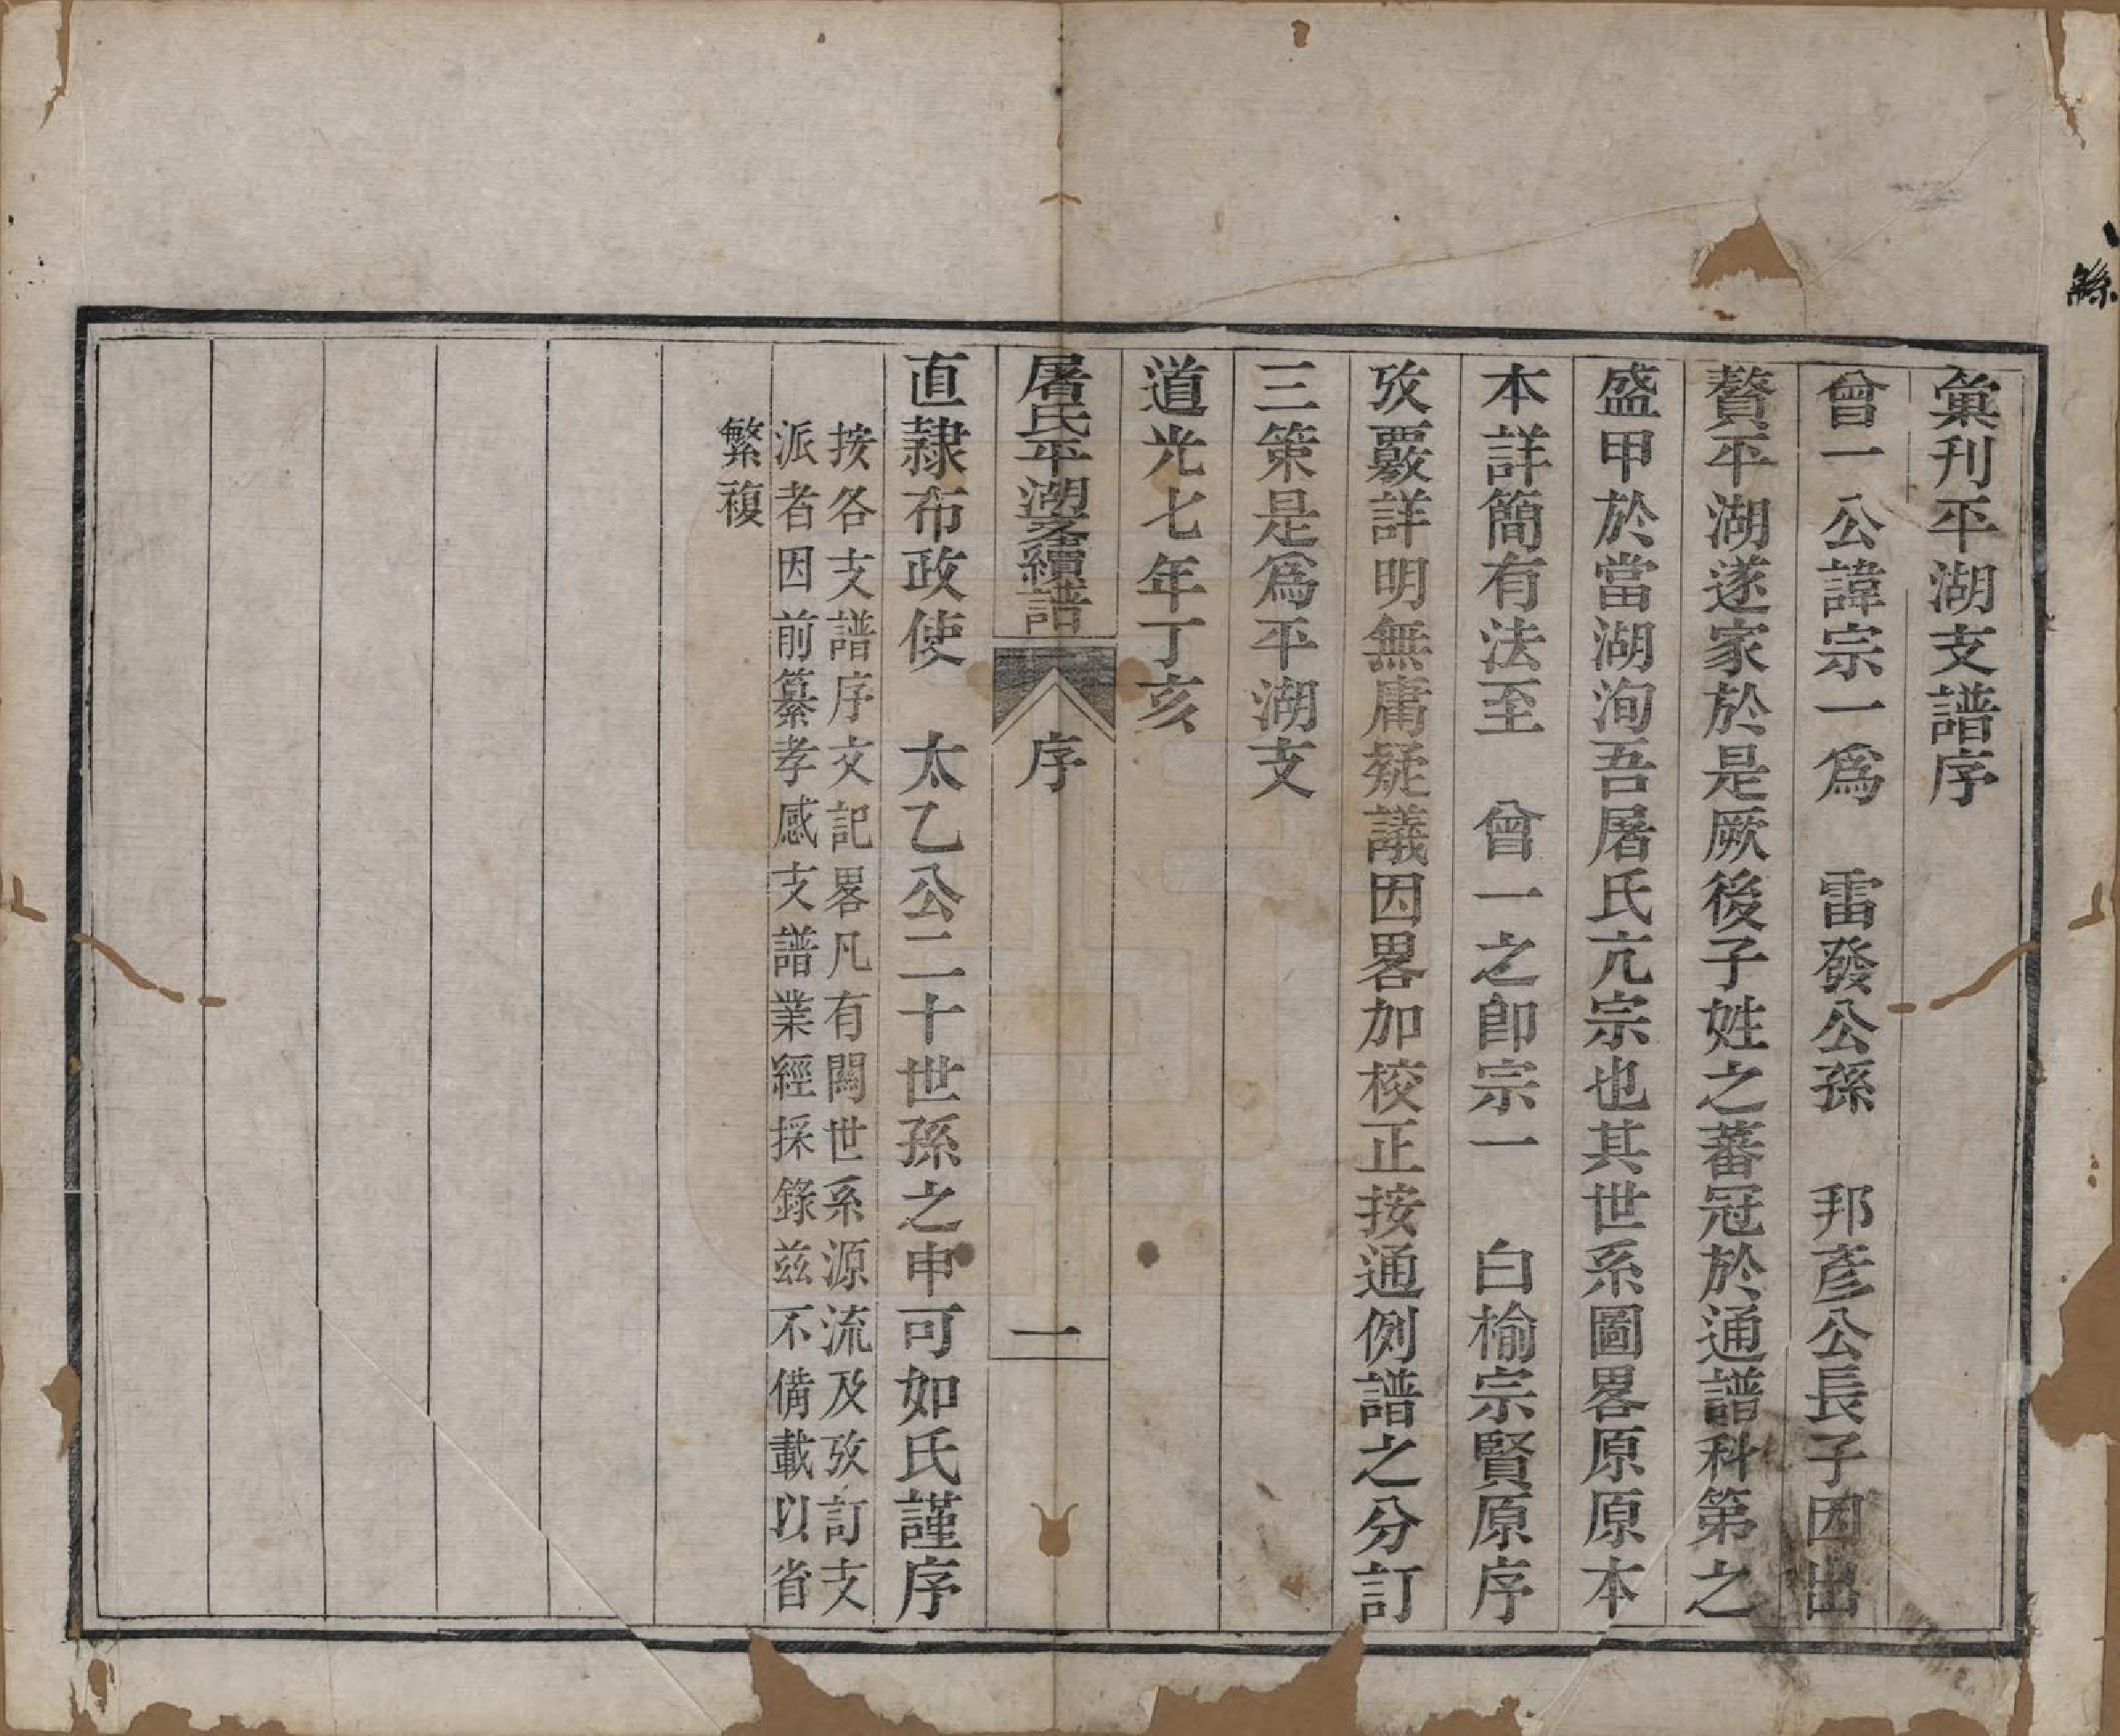 彙刊平湖支譜序
曾一公諱宗一爲　雷發公孫　邦彥公長子因出
贅平湖遂家於是厥後子姓之蕃冠於通譜科第之
盛甲於當湖洵吾屠氏亢宗也其世系圖畧原原本
本詳簡有法至　曾一之卽宗一　白榆宗賢原序
攷覈詳明無庸疑議因畧加校正按通例譜之分訂
三策是爲平湖支
道光七年丁亥
屠氏平湖支續譜
序
一
直隷布政使　太乙公二十世孫之申可如氏謹序
按各支譜序文記畧凡有關世系源流及攷訂支
派者因前纂孝感支譜業經採錄兹不備載以省
繁複